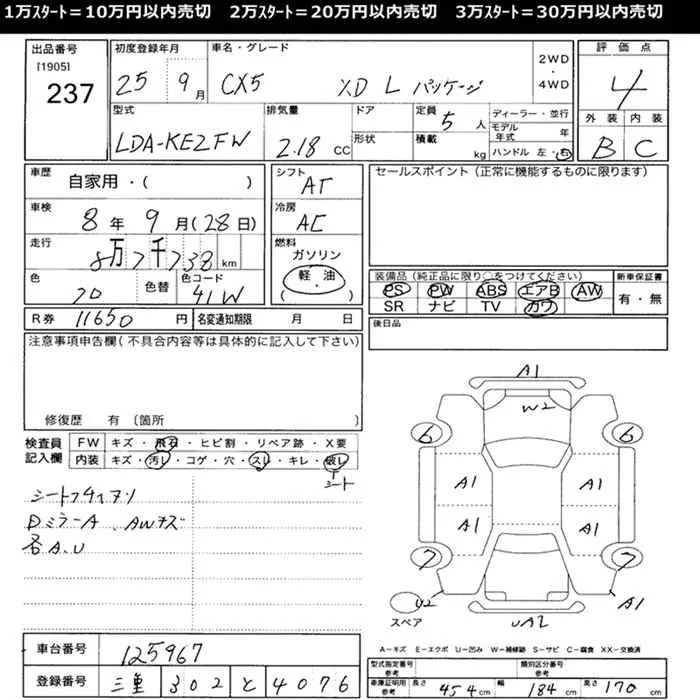 1万ｽﾀｰﾄ＝10万円以内売切　2万ｽﾀｰﾄ＝20万円以内売切　3万ｽﾀｰﾄ＝30万円以内売切
出品番号
[1905]
237
初度登録年月
25 9月
車名・グレード
CX5 XD L パッケージ
2WD
・
4WD
評価点
4
外装 内装
B C
型式
LDA-KE2FW
排気量
2.18 CC
ドア
形状
定員
5人
積載
kg
ディーラー・並行
モデル年式 年
ハンドル 左・右
車歴
自家用・( )
車検
8年 9月(28日)
走行
8万7千738km
色
色替
色コード
41W
シフト
AT
冷房
AC
燃料
ガソリン
軽・油
( ・ )
セールスポイント（正常に機能するものに限ります）
装備品（純正品に限り○をつけてください）
PS PW ABS エアB AW
SR ナビ TV カワ
新車保証書
有・無
後日品
R券 11650円
名変通知期限 月 日
注意事項申告欄（不具合内容等は具体的に記入して下さい）
修復歴 有（箇所
検査員記入欄
FW キズ・飛石・ヒビ割・リペア跡・X要
内装 キズ・汚レ・コゲ・穴・スレ・キレ・破レ
シート
DミラーA、AWキズ
各A.U
A1
W2
6 6
A1 A1
A1 A1
7 7
U2 A1
スペア
UA2
A－キズ E－エクボ U－凹み W－補修跡 S－サビ C－腐食 XX－交換済
車台番号 125967
登録番号 三重 302 と 4076
型式指定番号
参考
類別区分番号
参考
車庫証明用
参考
長さ 454cm 幅 184cm 高さ 170cm